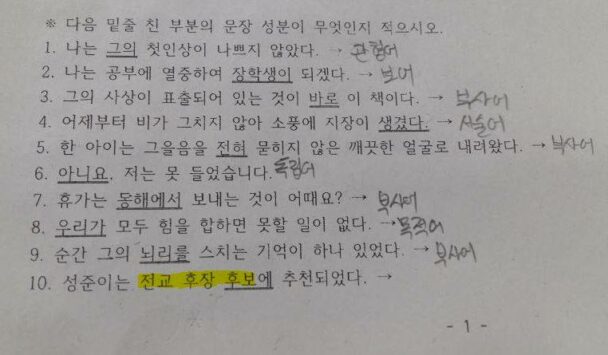 ※ 다음 밑줄 친 부분의 문장 성분이 무엇인지 적으시오.
1. 나는 그의 첫인상이 나쁘지 않았다. → 관형어
2. 나는 공부에 열중하여 장학생이 되겠다. → 보어
3. 그의 사상이 표출되어 있는 것이 바로 이 책이다. → 부사어
4. 어제부터 비가 그치지 않아 소풍에 지장이 생겼다. → 서술어
5. 한 아이는 그을음을 전혀 묻히지 않은 깨끗한 얼굴로 내려왔다. → 부사어
6. 아니요, 저는 못 들었습니다. 독립어
7. 휴가는 동해에서 보내는 것이 어때요? → 부사어
8. 우리가 모두 힘을 합하면 못할 일이 없다. → 목적어
9. 순간 그의 뇌리를 스치는 기억이 하나 있었다. → 부사어
10. 성준이는 전교 후장 후보에 추천되었다. →
- 1 -